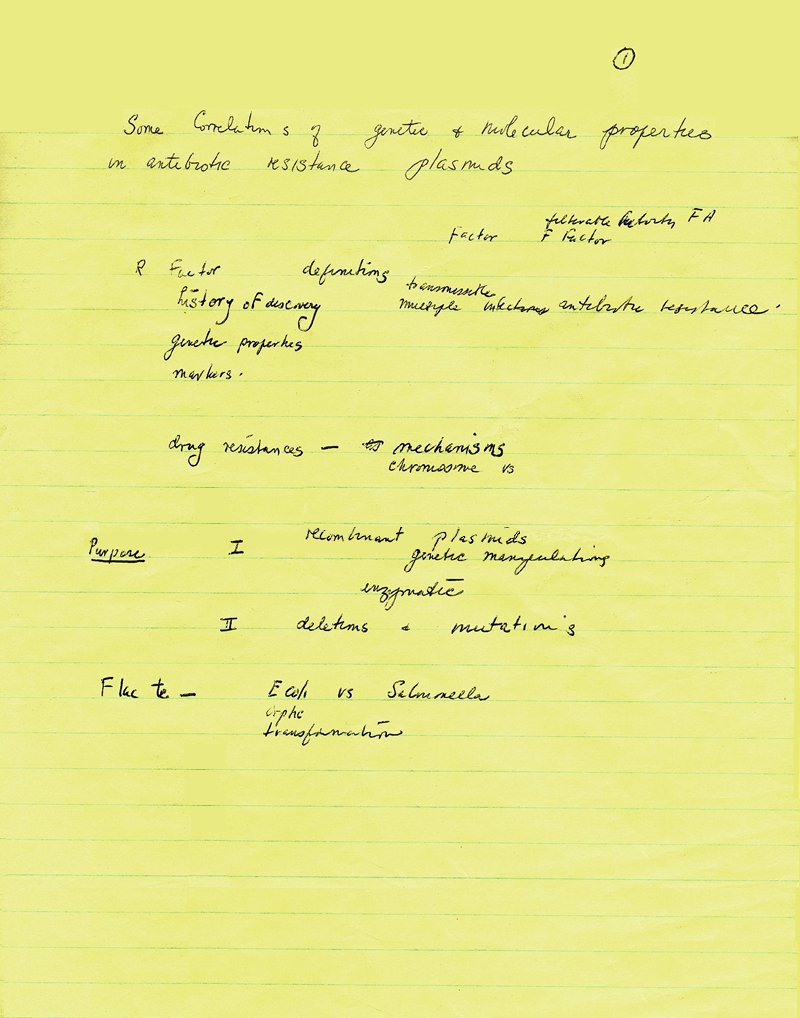 1
Some Correlations of genetic & molecular properties
in antibiotic resistance plasmids
filterable F A
Factor F Factor
R Factor definitions
transmissible
history of discovery multiple infectious antibiotic resistance.
genetic properties
markers.
drug resistances — mechanisms
chromosome vs
Purpose I recombinant plasmids
genetic manipulations
enzymatic
II deletions & mutations
F lac tc — E coli vs Salmonella
transformation